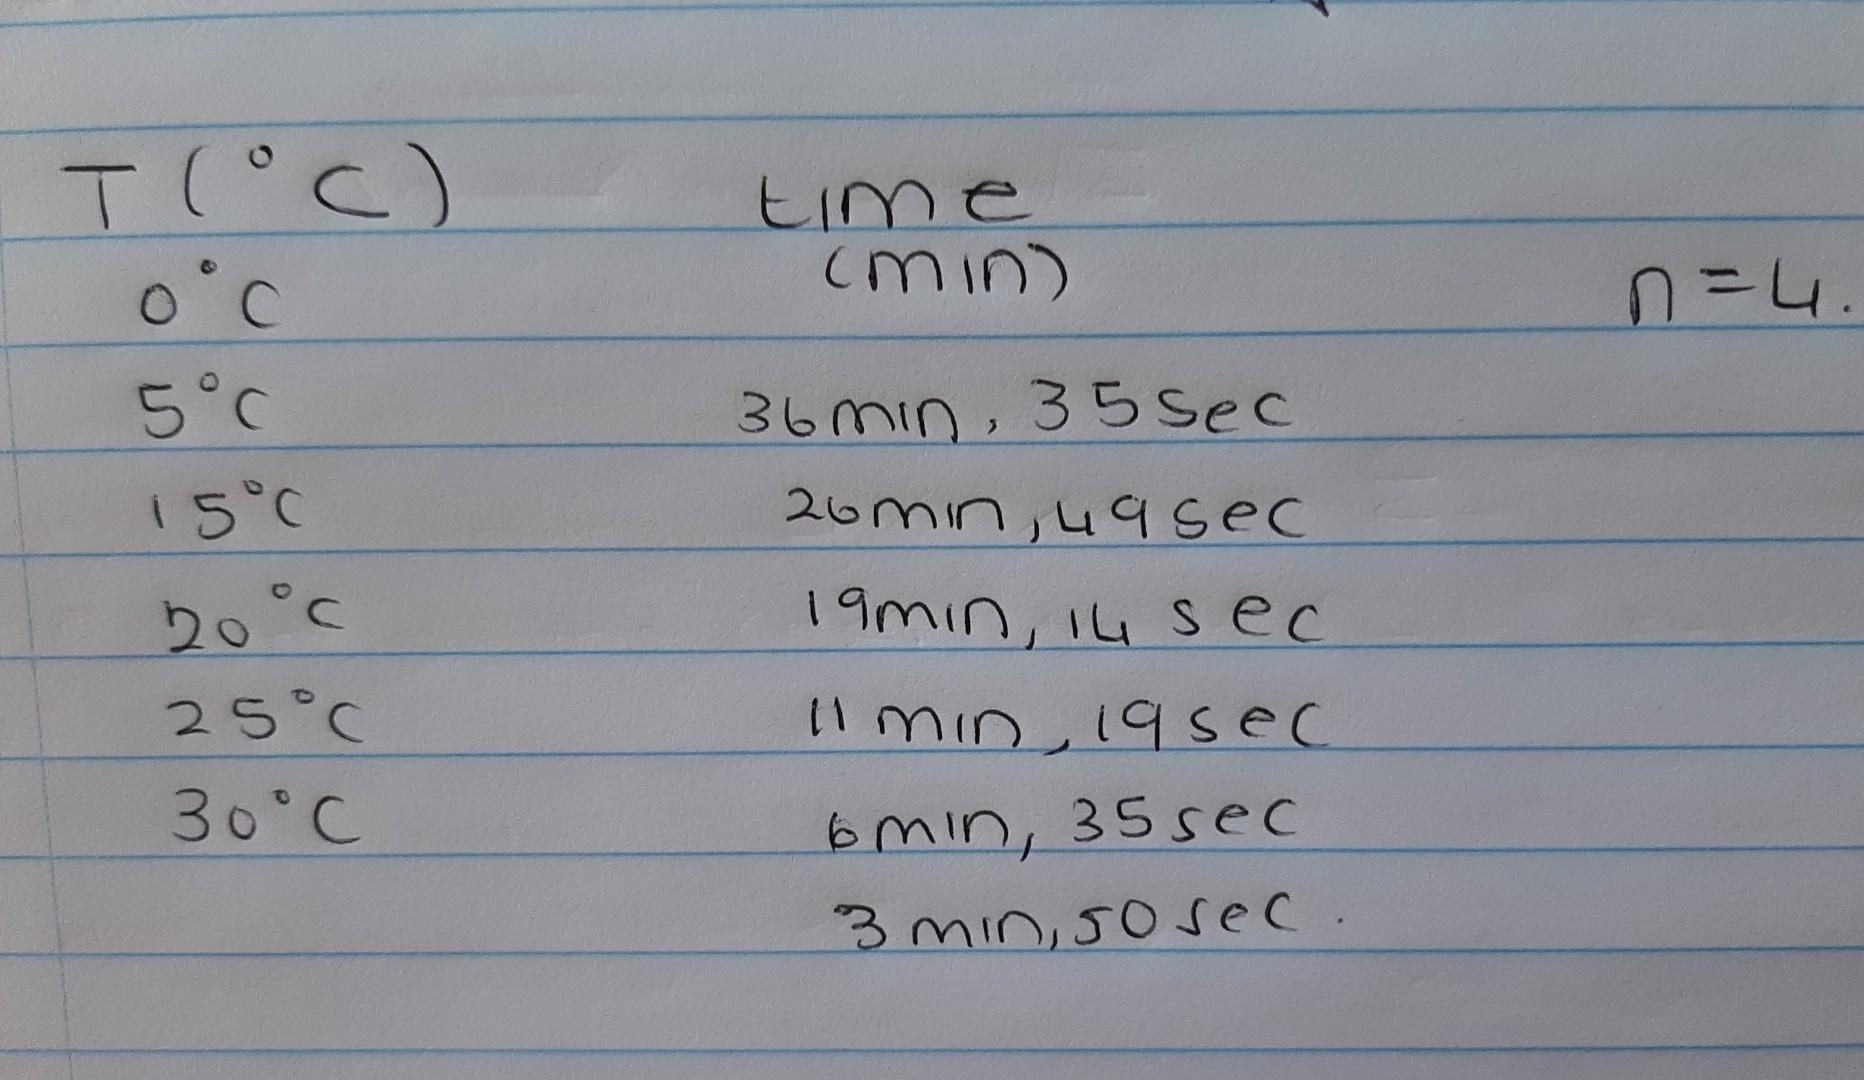 T (°C) time
(min)
0°C n=4.
5°C 36min, 35sec
15°C 26min, 49sec
20°C 19min, 14 sec
25°C 11 min, 19sec
30°C 6min, 35sec
3 min, 50 sec.